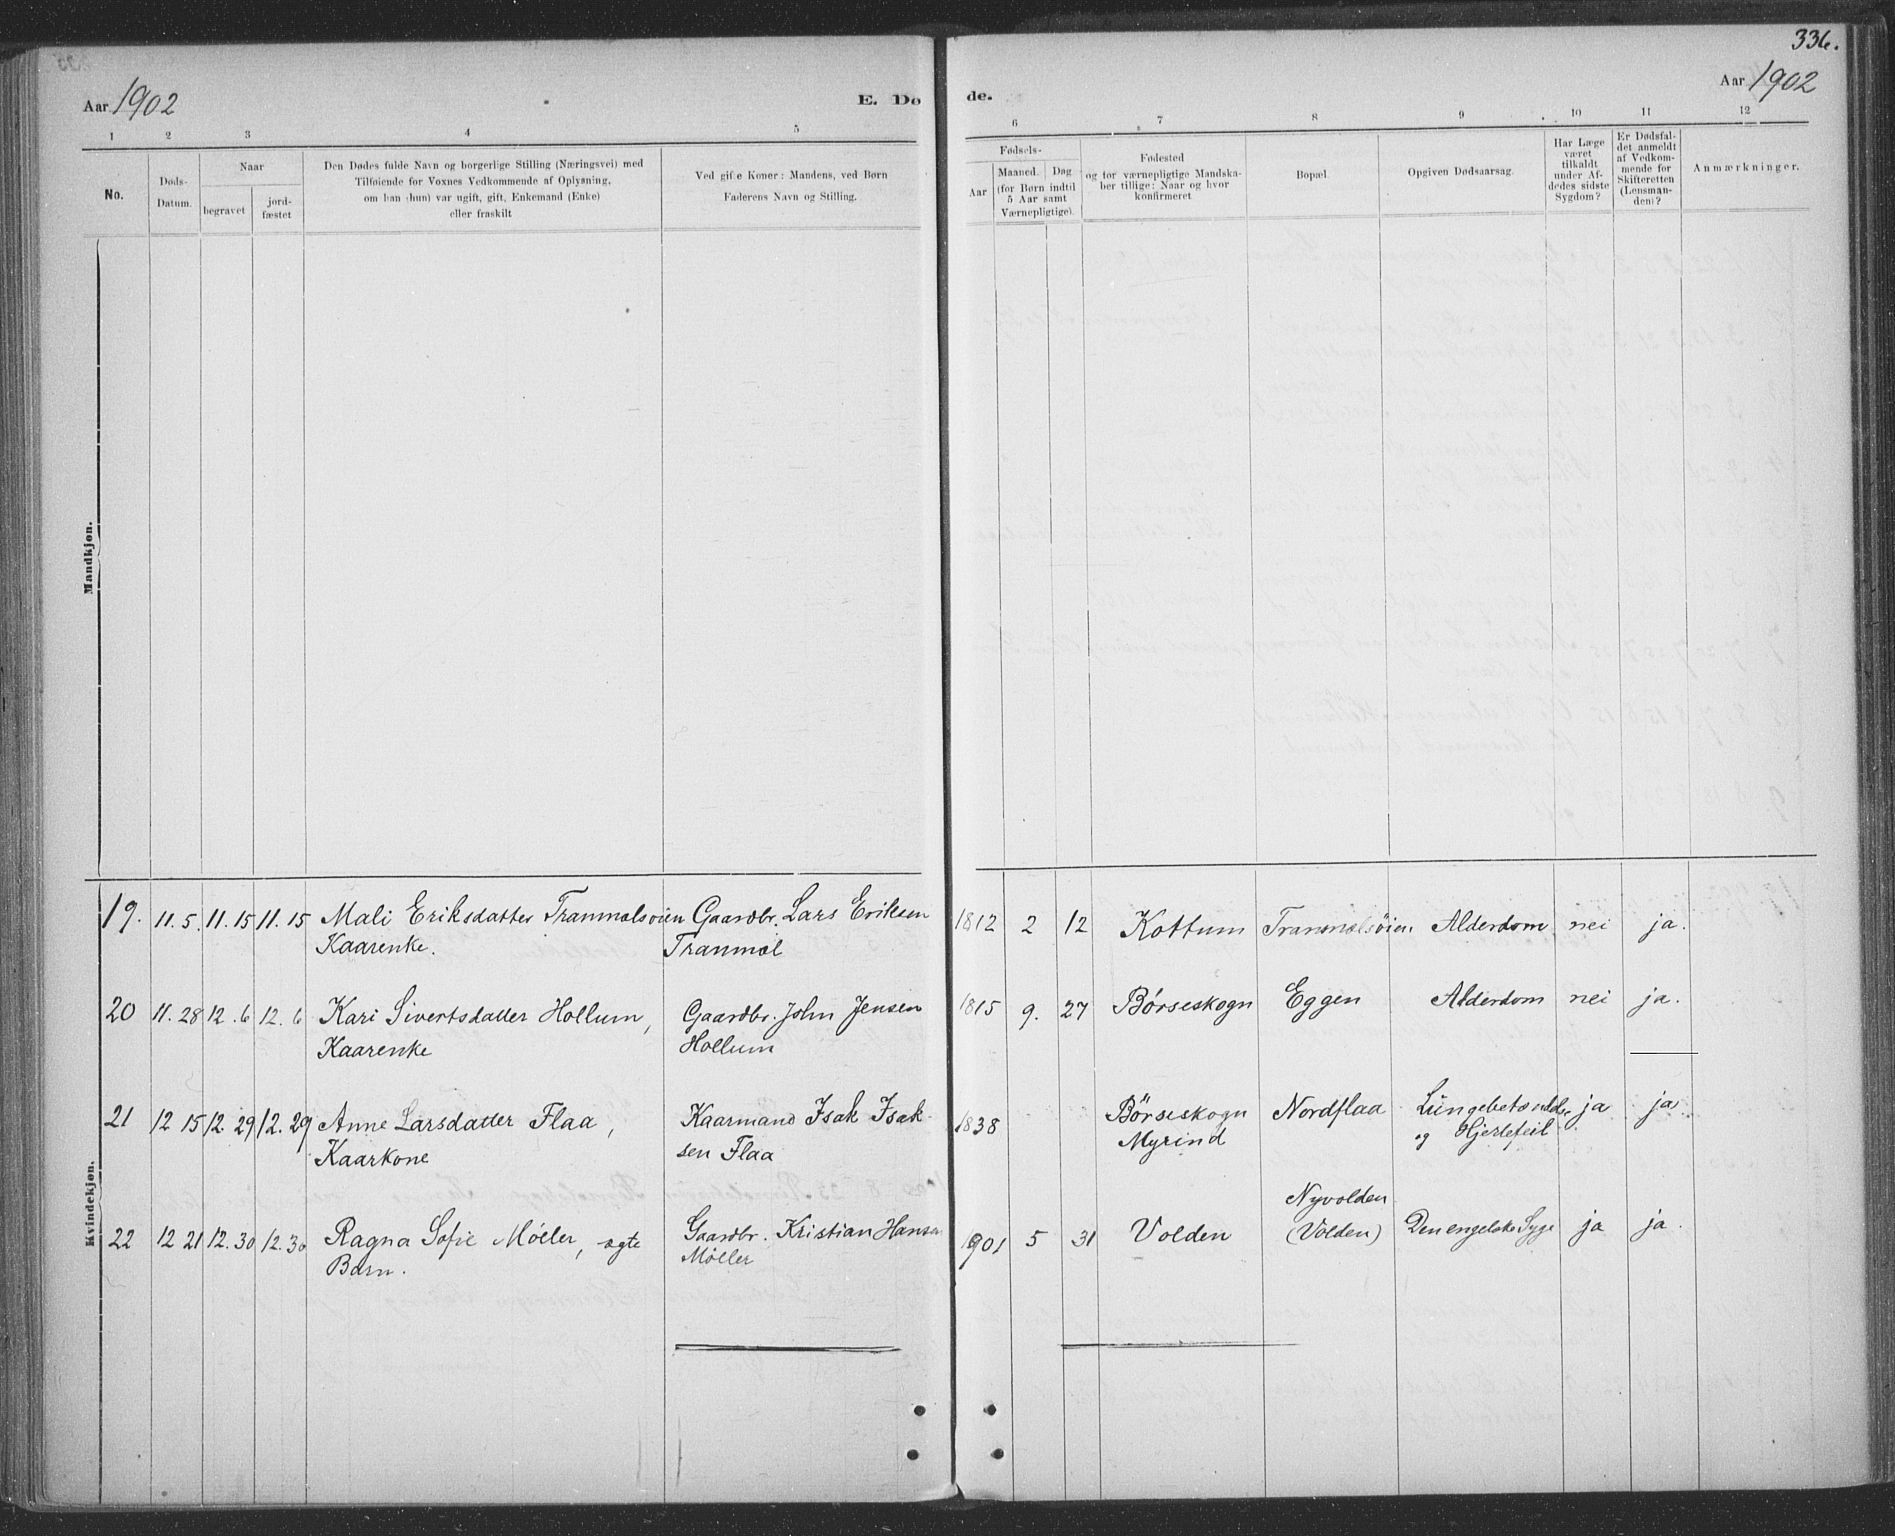 336.
Aar 1902
E. Dø
de.
Aar 1902
1 2 3 4 5
6 7 8 9 10 11 12
No.
Døds-
Datum.
Naar
begravet
jord-
fæstet
Den Dødes fulde Navn og borgerlige Stilling (Næringsvei) med
Tilføiende for Voxnes Vedkommende af Oplysning,
om han (hun) var ugift, gift, Enkemand (Enke)
eller fraskilt
Ved gifte Koner: Mandens, ved Børn
Faderens Navn og Stilling.
Fødsels-
Aar
Maaned. Dag
(for Børn indtil
5 Aar samt
Værnepligtige).
Fødested
og for værnepligtige Mandska-
ber tillige: Naar og hvor
konfirmeret
Bopæl.
Opgiven Dødsaarsag.
Har Læge
været
tilkaldt
under Af-
dødes sidste
Sygdom?
Er Dødsfal-
det anmeldt
af Vedkom-
mende for
Skifteretten
(Lensman-
den)?
Anmærkninger.
Mandkjøn.
Kvindekjøn.
19. 11. 5. 11. 15 11. 15 Mali Eriksdatter Tranmælsøien Gaardbr. Lars Eriksen 1812 2 12 Kottum Tranmælsøien Alderdom nei ja.
Kaarenke. Tranmæl
20 11. 28 12. 6 12. 6 Kari Sivertsdatter Hollum, Gaardbr. John Jensen 1815 9. 27 Børseskogn Eggen Alderdom nei ja.
Kaarenke Hollum
21 12 15 12. 29 12. 29 Anne Larsdatter Flaa, Kaarmand Isak Isak- 1838 Børseskogn Nordflaa Lungebetændelse ja ja.
Kaarkone sen Flaa Myrind og Hjertefeil
Nyvolden
22 12 21 12. 30 12. 30 Ragna Sofie Møller, ægte Gaardbr. Kristian Hansen 1901 5 31 Volden (Volden) Den engelske Syge ja ja.
Barn. Møller